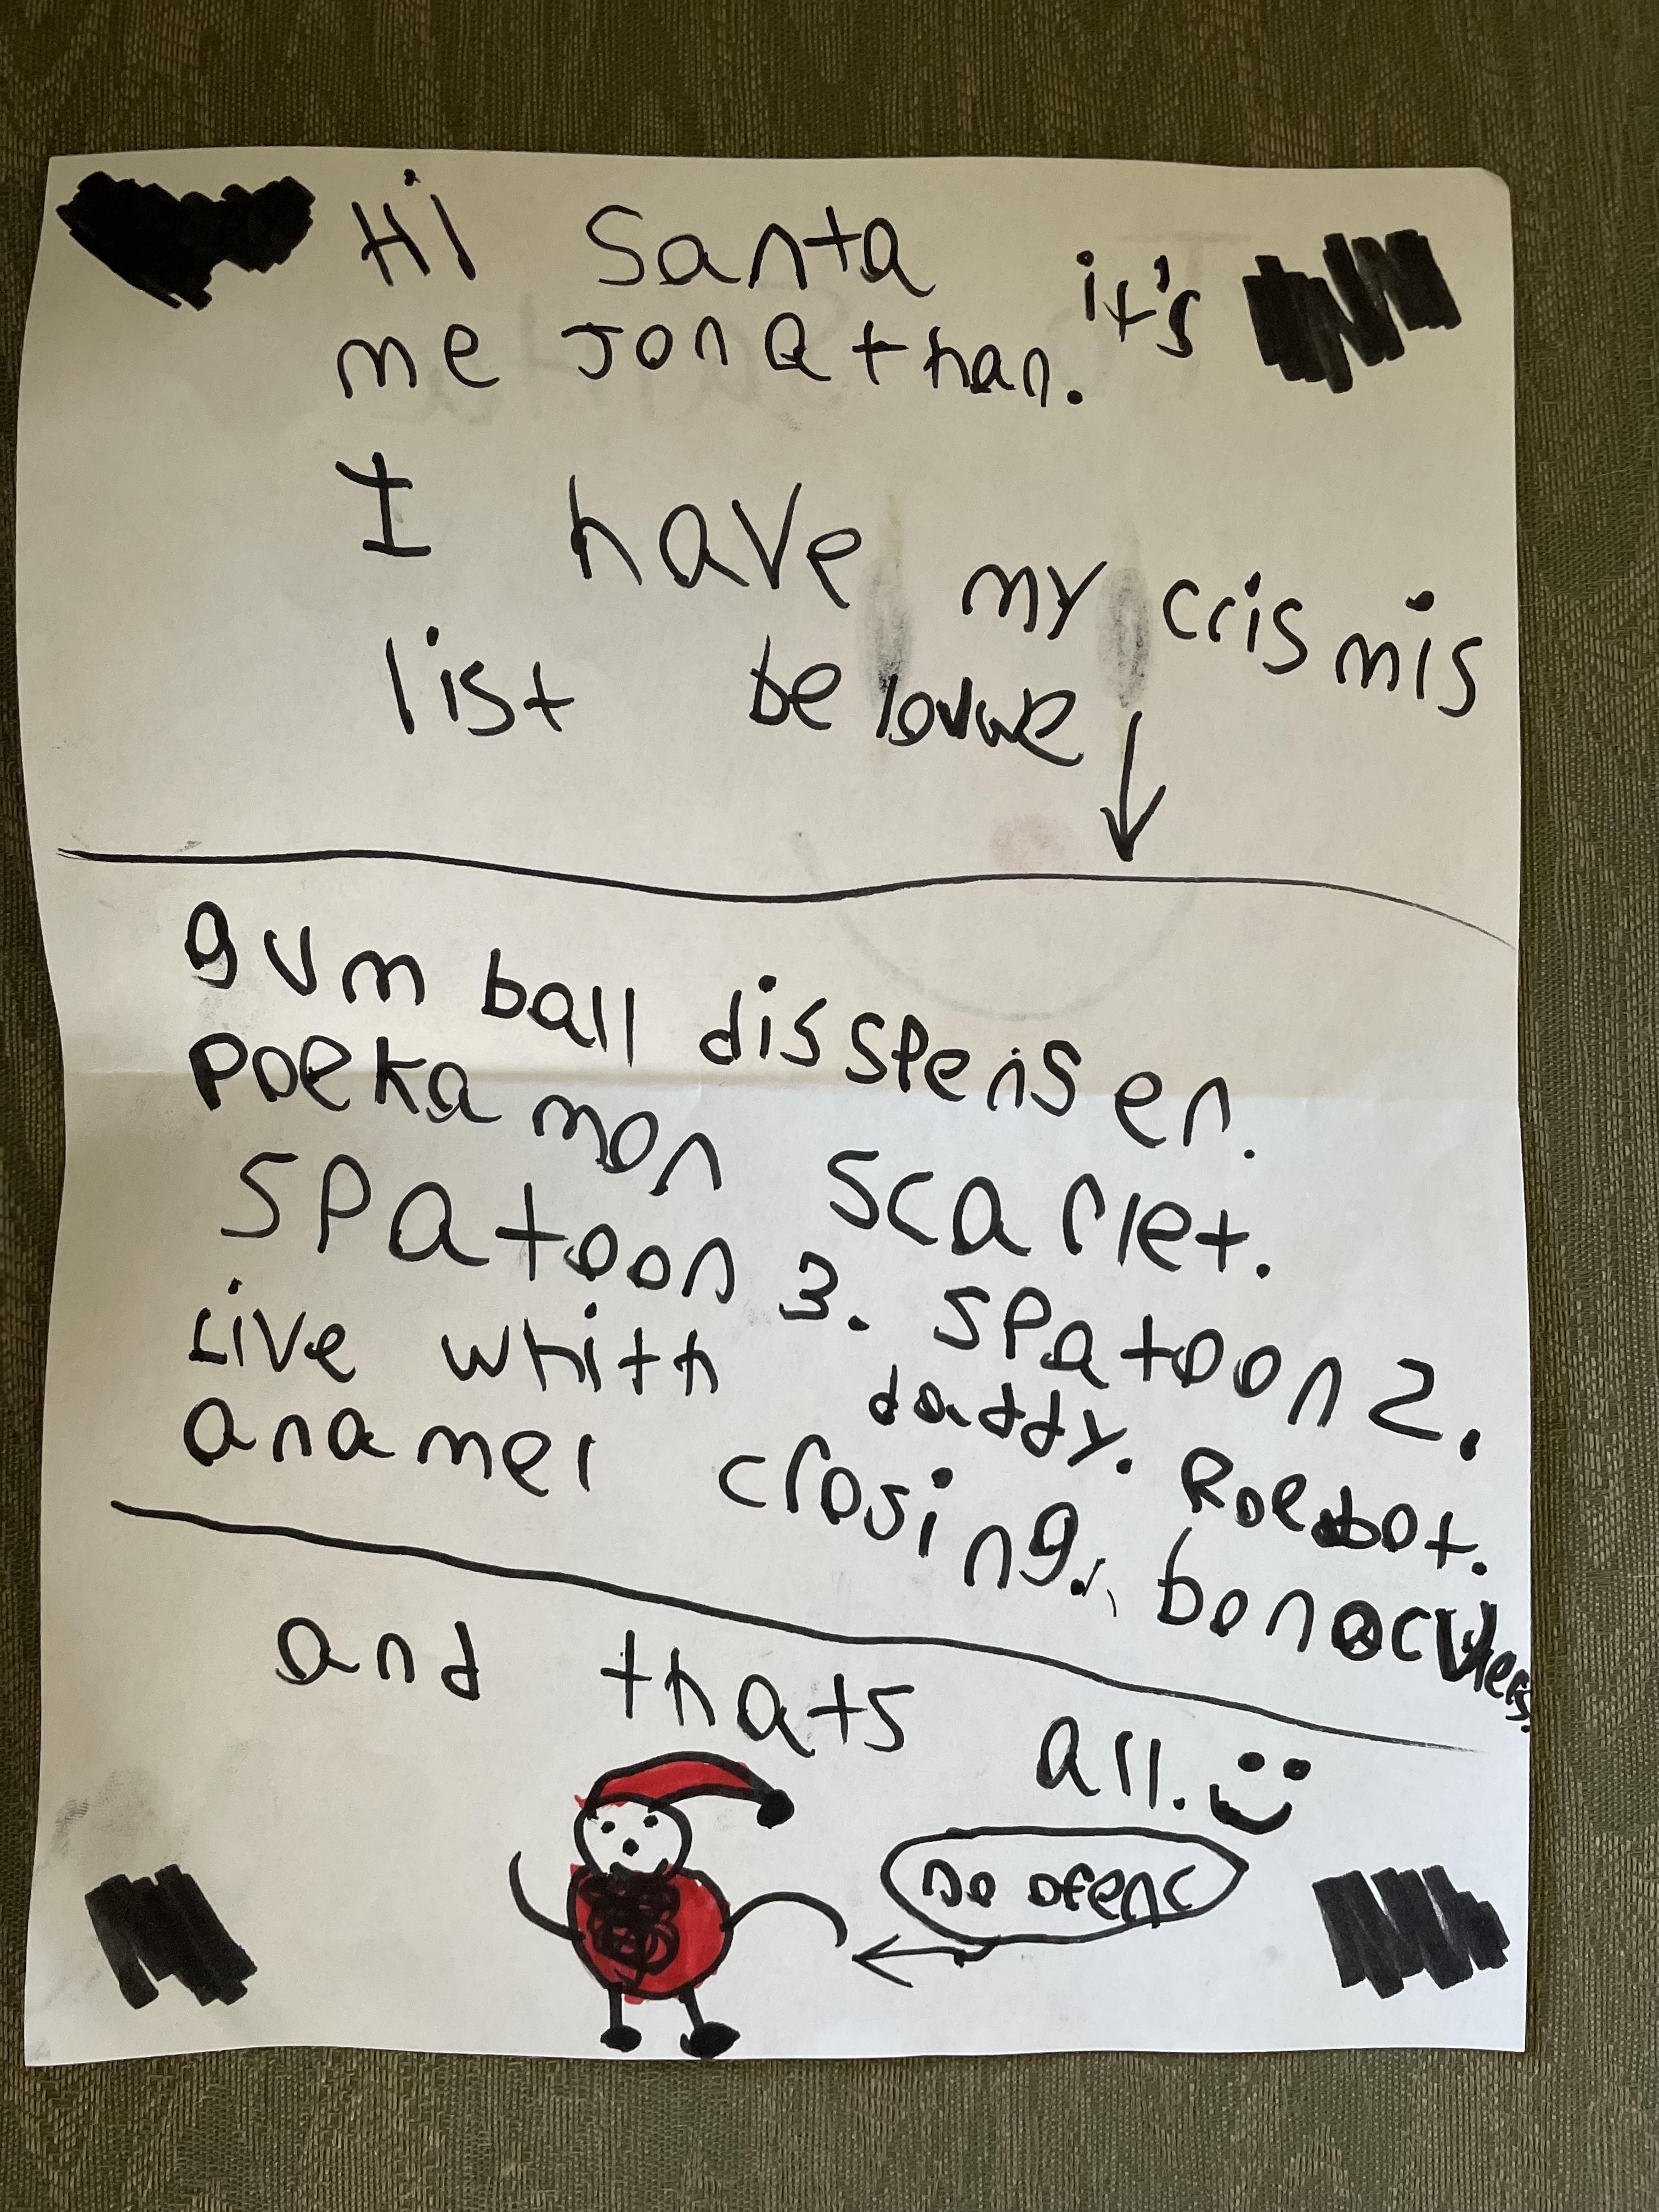 Hi Santa it's
me Jonathan.
I have my crismis
list belowwe
gum ball disspenser.
Poekamon Scarlet.
Spatoon 3. Spatoon 2.
Live whith daddy. Roebot.
anamel crosing. bonoculers.
and thats all.
no ofenc